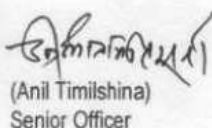 (Anil Timilshina)
Senior Officer